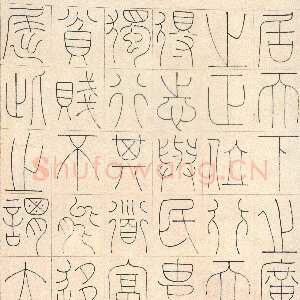 居天下之廣
之正位行天
得志與民由
獨行其道富
貧賤不能移
屈此之謂大
Shufawang.CN